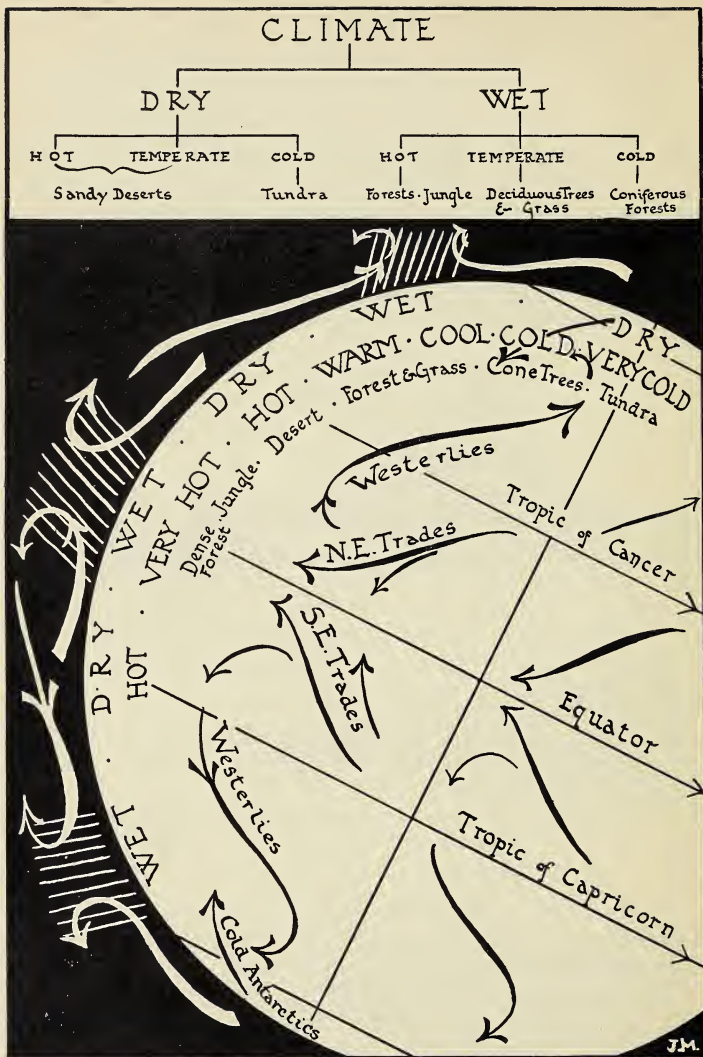 CLIMATE
DRY WET
HOT TEMPERATE COLD HOT TEMPERATE COLD
Sandy Deserts Tundra Forests · Jungle Deciduous Trees & Grass Coniferous Forests
WET · DRY · WET · DRY · WET · DRY
HOT · VERY HOT · HOT · WARM · COOL · COLD · VERY COLD
Dense Forest · Jungle · Desert · Forest & Grass · Cone Trees · Tundra
Westerlies
Tropic of Cancer
N.E. Trades
S.E. Trades
Equator
Westerlies
Tropic of Capricorn
Cold Antarctics
J.M.